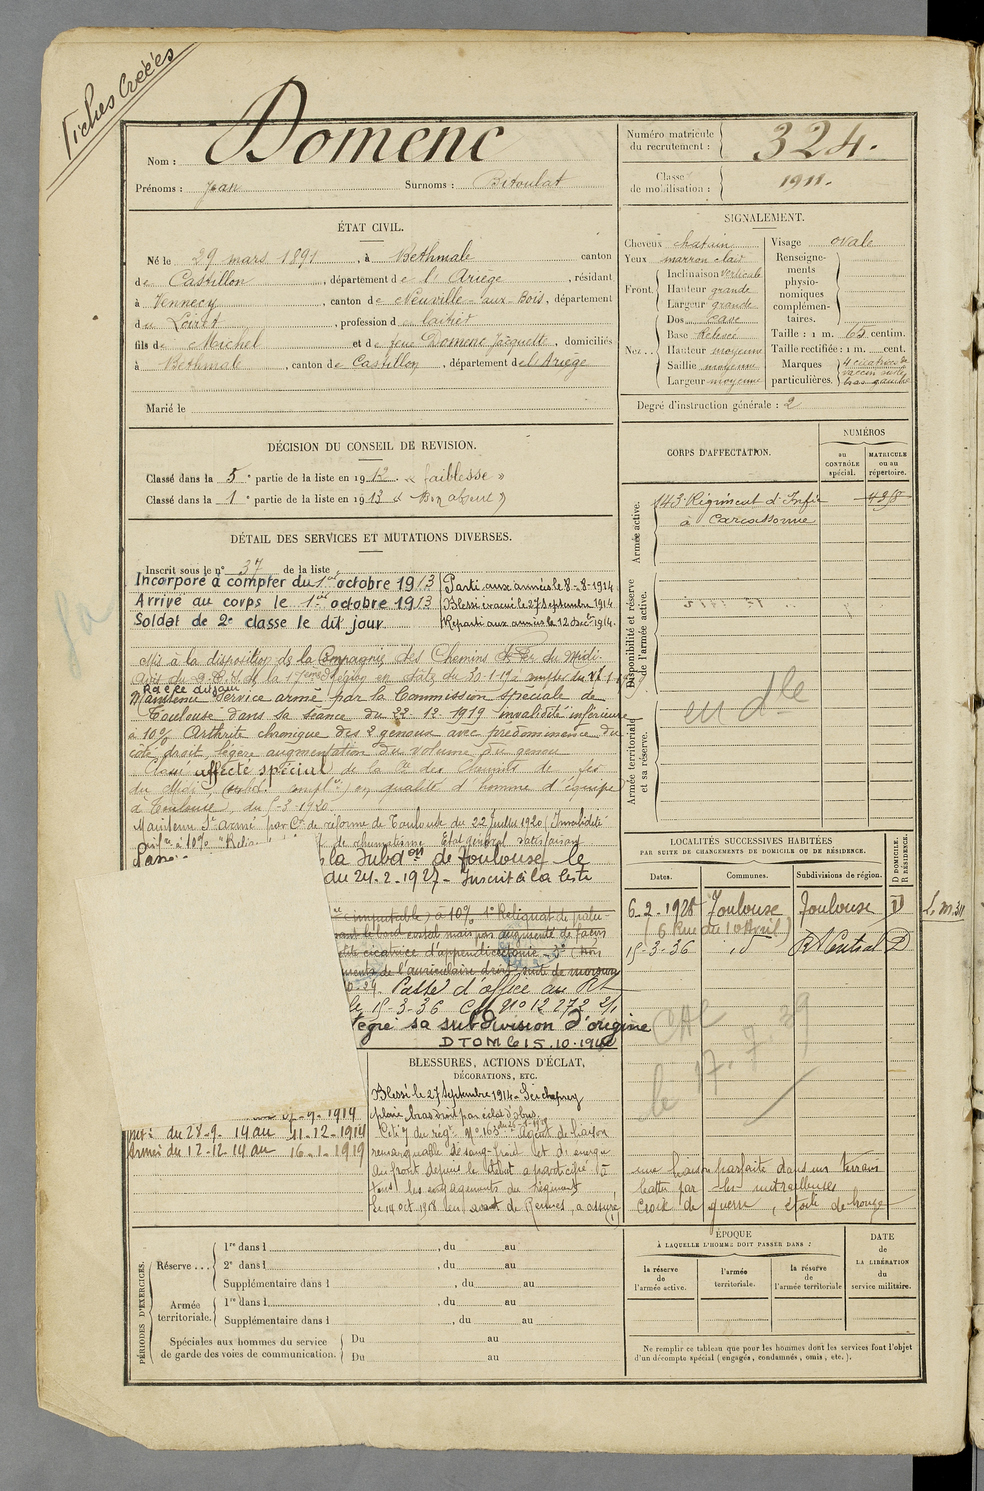 Fiches Créées
Nom : Domenc
Prénoms : Jean Surnoms : Bitoulat
Numéro matricule du recrutement : 324.
Classe de mobilisation : 1911.
ÉTAT CIVIL.
Né le 29 mars 1891, à Bethmale canton
de Castillon, département de l'Ariège, résidant
à Vennecy, canton de Neuville-aux-Bois, département
du Loiret, profession de laitier
fils de Michel et de feue Domenc Jacquette, domiciliés
à Bethmale, canton de Castillon, département de l'Ariège
Marié le
SIGNALEMENT.
Cheveux chatain
Yeux marron clair
Front. Inclinaison verticale
Hauteur grande
Largeur grande
Nez. Dos cave
Base Relevée
Hauteur moyenne
Saillie moyenne
Largeur moyenne
Visage ovale
Renseignements physionomiques complémentaires.
Taille : 1 m. 65 centim.
Taille rectifiée : 1 m. cent.
Marques particulières. 4 cicatrices de vaccin sur le bras gauche
Degré d'instruction générale : 2
DÉCISION DU CONSEIL DE REVISION.
Classé dans la 5e partie de la liste en 1912. « faiblesse »
Classé dans la 1e partie de la liste en 1913 « Bon absent »
DÉTAIL DES SERVICES ET MUTATIONS DIVERSES.
Inscrit sous le n° 37 de la liste
Incorporé à compter du 1er octobre 1913
Arrivé au corps le 1er octobre 1913
Soldat de 2e classe le dit jour
Parti aux armées le 8-8-1914
Blessé évacué le 27 Septembre 1914
Reparti aux armées le 12 Dec 1914.
Mis à la disposition de la Compagnie des Chemins de Fer du Midi.
Rayé dudit jour
Maintenu Service armé par la Commission spéciale de
Toulouse dans sa séance du 22-12-1919 invalidité inférieure
à 10% Arthrite chronique des 2 genoux avec prédominence du
côté droit, légère augmentation du volume du genou
Classé affecté spécial de la Cie des Chemins de fer
du Midi, en qualité d'homme d'équipe
à Toulouse, du 5-3-1920.
Maintenu S. armé par Con de réforme de Toulouse du 22 Juillet 1920 (Invalidité
infre à 10% de rhumatisme Etat général satisfaisant
la Subdon de Toulouse le
du 24-2-1927- Inscrit à la liste
imputable) à 10% 1° Reliquat de
le bord costal mais pas augmenté de façon
cicatrice d'appendicectomie - 3°
de l'auriculaire droit, suite de morsure
Passé d'office au
le 15-3-36 n° 12272
sa subdivision d'origine
DTOM le 15.10.1940
9-1914
du 28-9-14 au 11-12-1914
Armées du 12-12-14 au 16-1-1919
CORPS D'AFFECTATION.
NUMÉROS
au CONTRÔLE spécial.
MATRICULE ou au répertoire.
Armée active.
143 Régiment d'Infie
à Carcassonne
Disponibilité et réserve de l'armée active.
Armée territoriale et sa réserve.
en dle
LOCALITÉS SUCCESSIVES HABITÉES
PAR SUITE DE CHANGEMENTS DE DOMICILE OU DE RÉSIDENCE.
Dates. Communes. Subdivisions de région. D DOMICILE. R RÉSIDENCE.
6-2-1928 Toulouse Toulouse D
(6 Rue du 10 Avril)
15-3-36 id R Central D
le 17.7.39
BLESSURES, ACTIONS D'ÉCLAT,
DÉCORATIONS, ETC.
Blessé le 27 Septembre 1914 - Seicheprey
plaie bras droit par éclat d'obus.
Cité du régt n° 163 Agent de liaison
remarquable de sang-froid et de energie
Au front depuis le début a participé à
tous les engagements du Régiment
Le 14 oct 1918 a assuré
une liaison parfaite dans un terrain
battu par les mitrailleuses
Croix de guerre, étoile de bronze
PÉRIODES D'EXERCICES.
Réserve... 1re dans l , du au
2e dans l , du au
Supplémentaire dans l , du au
Armée territoriale. 1re dans l , du au
Supplémentaire dans l , du au
Spéciales aux hommes du service de garde des voies de communication. Du au
Du au
ÉPOQUE
À LAQUELLE L'HOMME DOIT PASSER DANS :
la réserve de l'armée active.
l'armée territoriale.
la réserve de l'armée territoriale
DATE de LA LIBÉRATION du service militaire.
Ne remplir ce tableau que pour les hommes dont les services font l'objet
d'un décompte spécial (engagés, condamnés, omis, etc.).